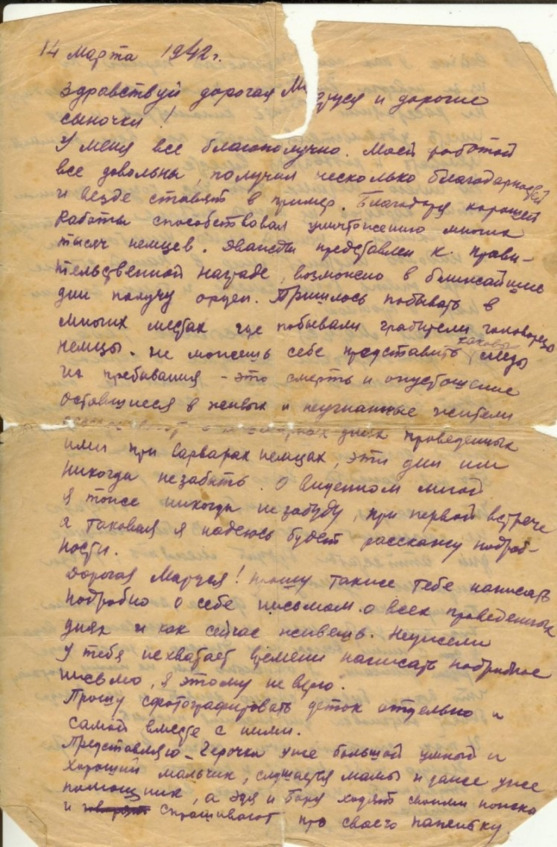 14 марта 1942 г.
Здравствуй дорогая Ма руся и дорогие
сыночки!
У меня все благополучно. Моей работой
все довольны, получил несколько благодарностей
и везде ставят в пример. Благодаря хорошей
работы способствовал уничтожению многих
тысяч немцев. Дважды представлен к прави-
тельственной награде, возможно в ближайшие
дни получу орден. Пришлось побывать в
многих местах где побывали грабители головорезы
немцы. Не можешь себе представить каковы следы
их пребывания - это смерть и опустошение
оставшиеся в живых и неугнанные жители
днях проведенных
ими при варварах немцах, эти дни им
никогда незабыть. О виденном мной
я тоже никогда незабуду, при первой встрече
а таковая я надеюсь будет расскажу подроб-
ности.
Дорогая Маруся! прошу также тебе написать
подробно о себе письмом о всех проведенных
днях и как сейчас живешь. Неужели
у тебя нехватает времени написать подробное
письмо, я этому не верю.
Прошу сфотографировать деток отдельно и
самой вместе с ними.
Представляю - Герочка уже большой умный и
хороший мальчик, слушается мамы и даже уже
помощник, а Эдя и Боря ходят своими ножками
и спрашивают про своего папеньку